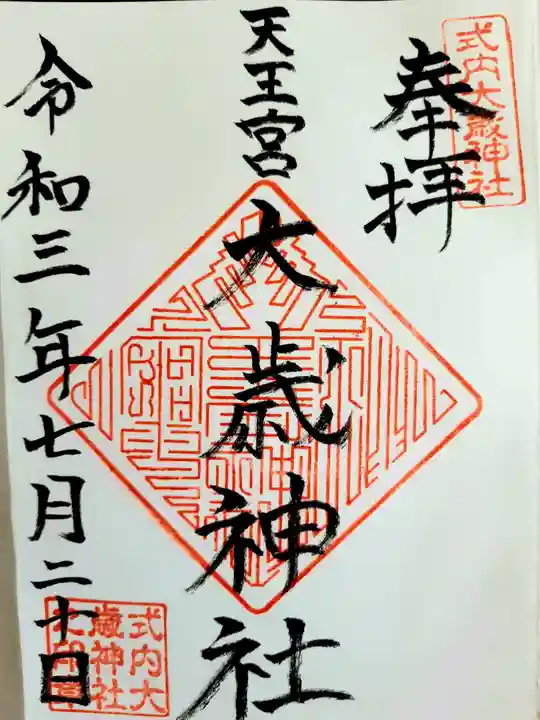 式内大歳神社
奉拝
天王宮大歳神社
令和三年七月二十日
式内大
歳神社